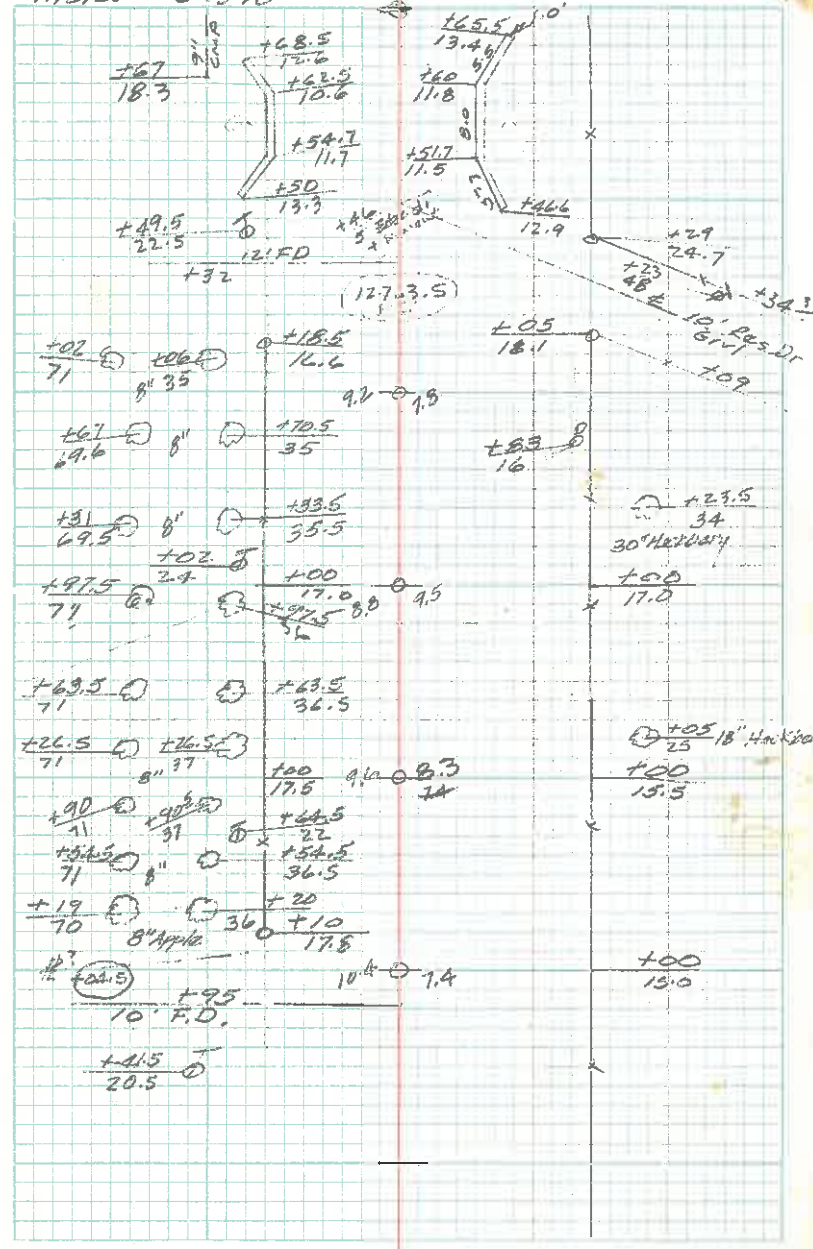 +65.5
13.4
+68.5
12.6
9" CMP
+67
18.3
+62.5
10.6
+60
11.8
8.0
+54.7
11.7
+51.7
11.5
+50
13.3
+46.6
12.9
+49.5
22.5
12' FD
+32
+29
24.7
+23
48
+34.3
127.3.5
10' Res. Dr
Grvl
+18.5
16.6
+05
18.1
+02
71
+06
35
8"
+09
9.2 7.8
+67
69.6
8"
+70.5
35
+83
16
+31
69.5
8"
+33.5
35.5
+23.5
34
30" Hackbery
+02
24
+97.5
71
+00
17.0
8.8 9.5
+00
17.0
+97.5
36
+63.5
71
+63.5
36.5
+26.5
71
+26.5
37
8"
+05
25
18"
+00
17.5
8.3
+00
15.5
+90
71
+90
37
+64.5
22
+54.5
71
8"
+54.5
36.5
+19
70
+20
36
8" Apple
+10
17.8
+02.5
10.4 7.4
+00
15.0
+95
10' F.D.
+41.5
20.5